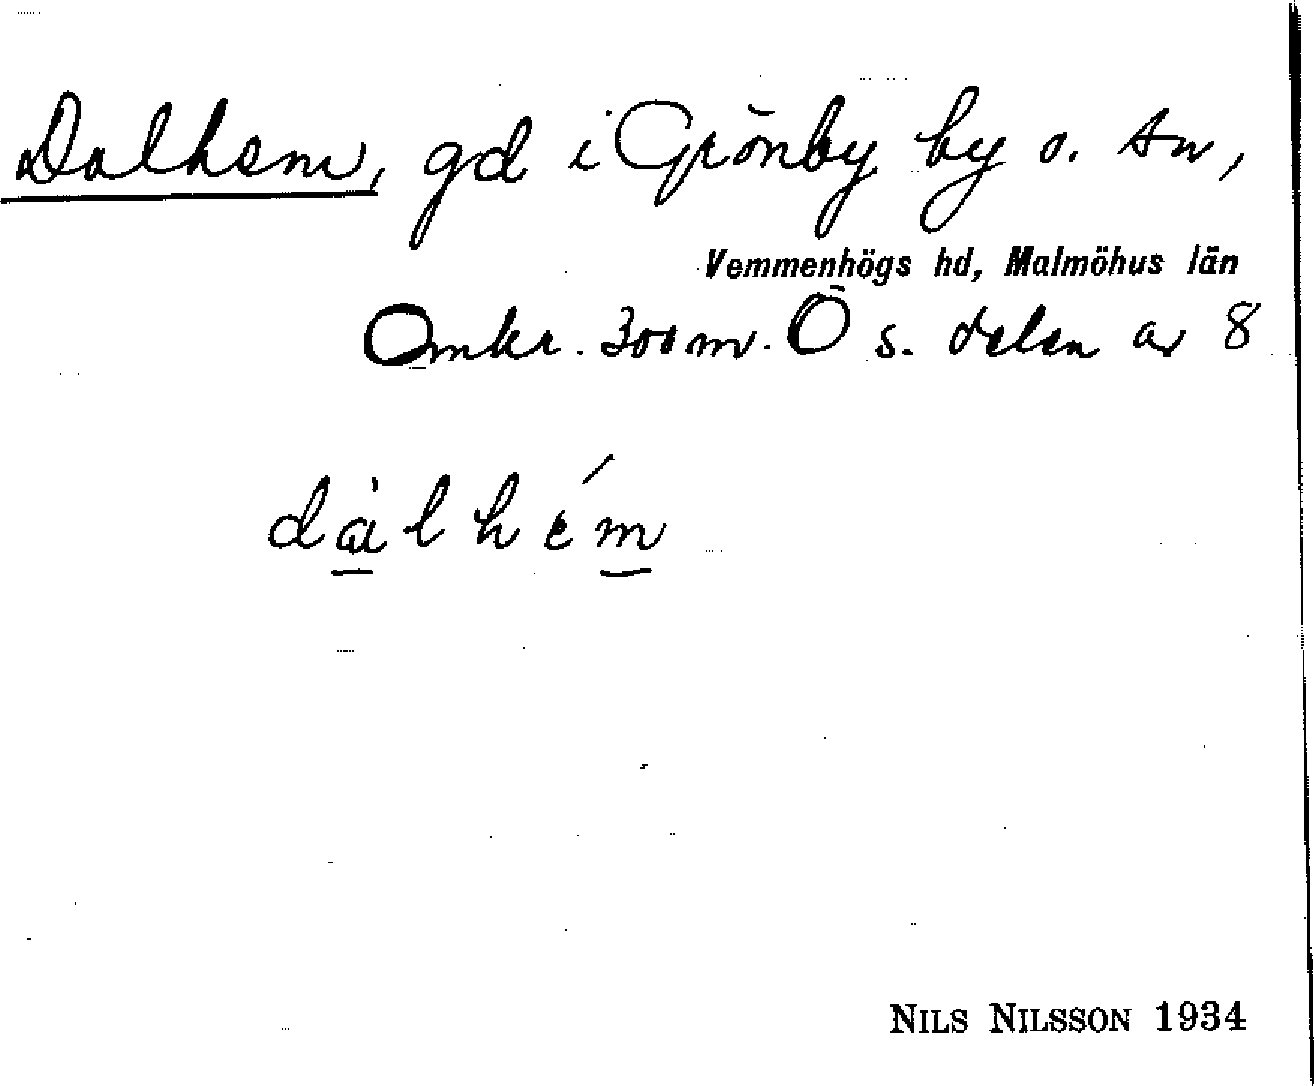 Dalhem, gd i Grönby by o. sn,
Vemmenhögs hd, Malmöhus län
Omkr. 300 m. Ö s. delen av 8
dàlhém
NILS NILSSON 1934